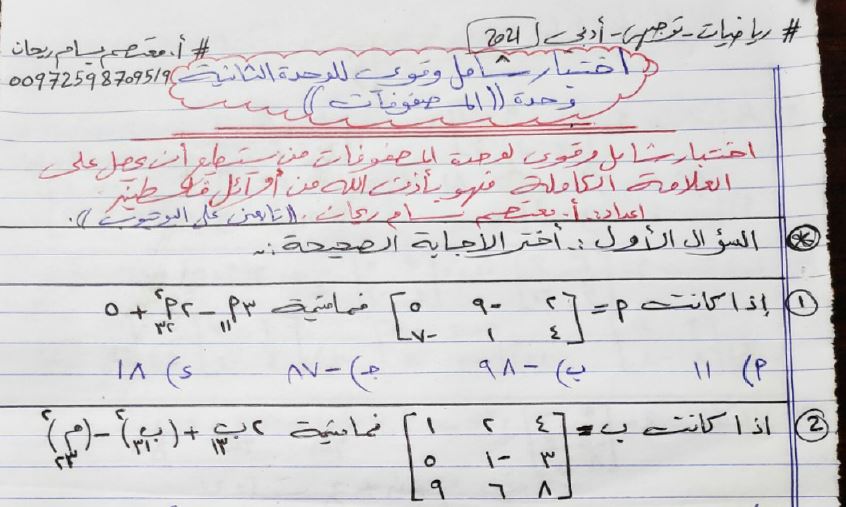 # رياضيات - توجيهي - أدبي 2021
# أ. معتصم بسام ريحان
00972598709519
اختبار شامل وقوي للوحدة الثانية
وحدة ((المصفوفات))
اختبار شامل وقوي لوحدة المصفوفات من يستطيع أن يحصل على
العلامة الكاملة فهو بأذن الله من أوائل فلسطين
اعداد: أ. معتصم بسام ريحان. ((تابعني على اليوتيوب)).
* السؤال الأول :. أختر الاجابة الصحيحة :.
1 إذا كانت م = [٢ -٩ ٥
٤ ١ -٧] فما قيمة ٣م١١ - ٢م٢٣² + ٥
م) ١١ ب) -٩٨ جـ) -٨٧ د) ١٨
2 اذا كانت ب = [٤ ٢ ١
٣ -١ ٥
٨ ٦ ٩] فما قيمة ٢ب١٣ + (ب٣١)² - (م٢٣)²